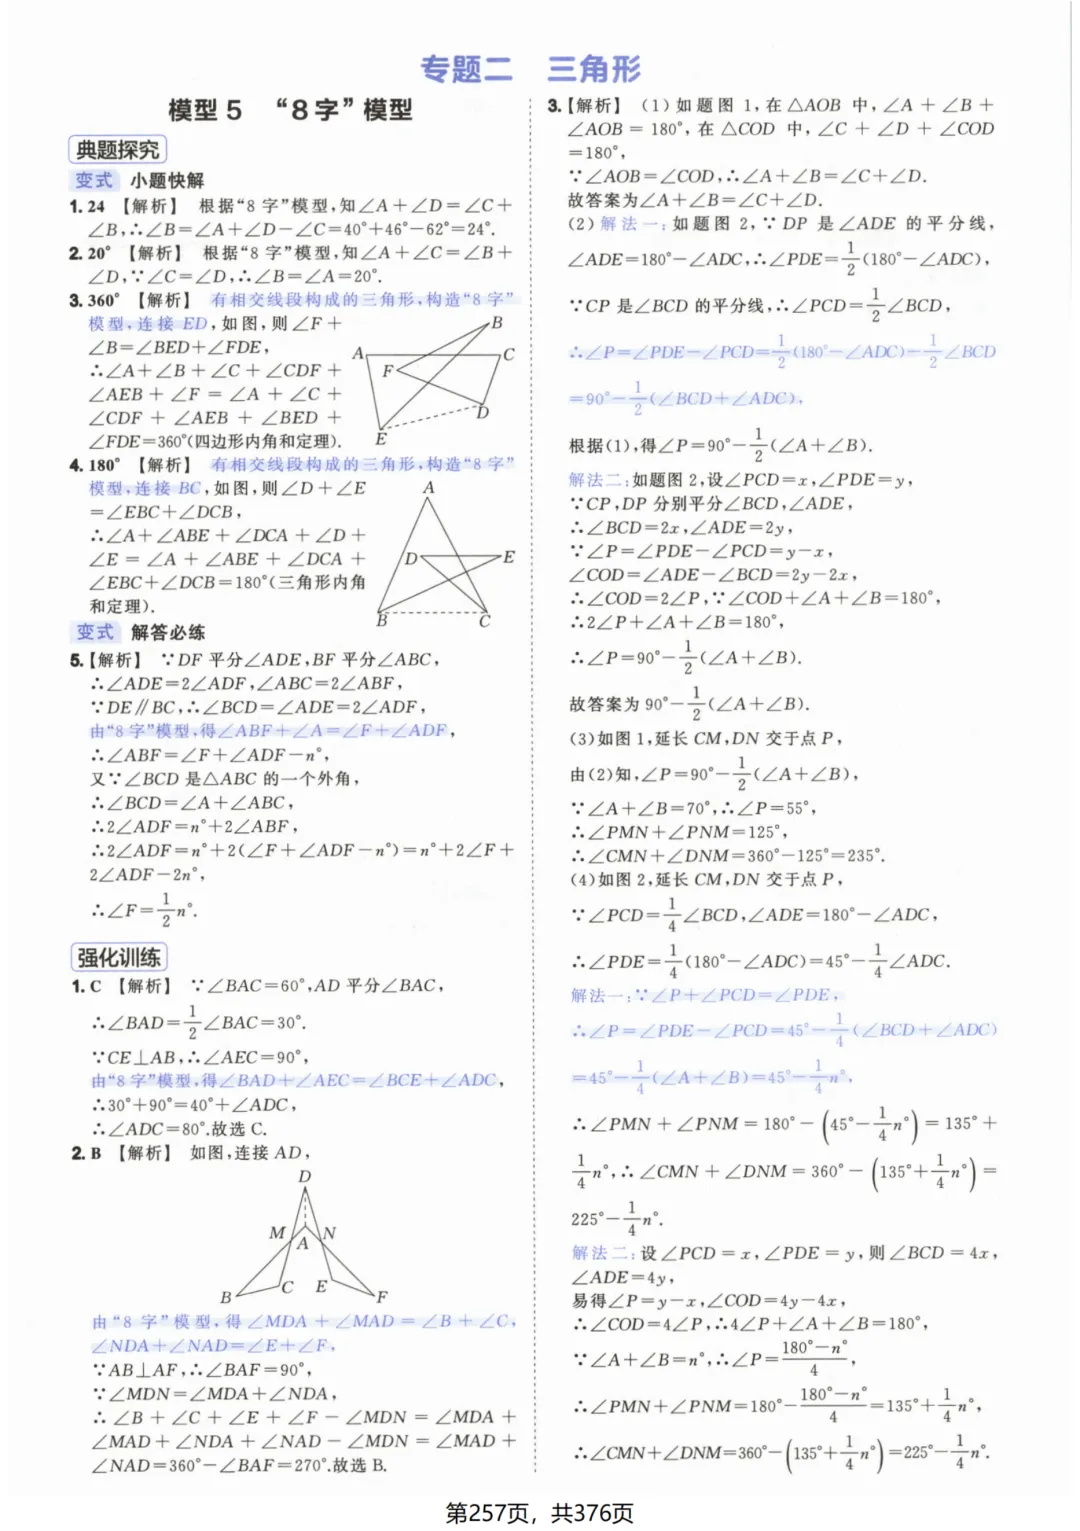 专题二 三角形
模型 5 “8 字”模型
典题探究
变式 小题快解
1. 24 【解析】 根据“8 字”模型,知∠A＋∠D＝∠C＋
∠B,∴∠B＝∠A＋∠D－∠C＝40°＋46°－62°＝24°.
2. 20° 【解析】 根据“8 字”模型,知∠A＋∠C＝∠B＋
∠D,∵∠C＝∠D,∴∠B＝∠A＝20°.
3. 360° 【解析】 有相交线段构成的三角形,构造“8 字”
模型,连接 ED,如图,则∠F＋
∠B＝∠BED＋∠FDE,
∴∠A＋∠B＋∠C＋∠CDF＋
∠AEB＋∠F＝∠A＋∠C＋
∠CDF＋∠AEB＋∠BED＋
∠FDE＝360°(四边形内角和定理).
B
A
C
F
D
E
4. 180° 【解析】 有相交线段构成的三角形,构造“8 字”
模型,连接 BC,如图,则∠D＋∠E
＝∠EBC＋∠DCB,
∴∠A＋∠ABE＋∠DCA＋∠D＋
∠E＝∠A＋∠ABE＋∠DCA＋
∠EBC＋∠DCB＝180°(三角形内角
和定理).
A
D
E
B
C
变式 解答必练
5.【解析】 ∵DF 平分∠ADE,BF 平分∠ABC,
∴∠ADE＝2∠ADF,∠ABC＝2∠ABF,
∵DE∥BC,∴∠BCD＝∠ADE＝2∠ADF,
由“8 字”模型,得∠ABF＋∠A＝∠F＋∠ADF,
∴∠ABF＝∠F＋∠ADF－n°,
又∵∠BCD 是△ABC 的一个外角,
∴∠BCD＝∠A＋∠ABC,
∴2∠ADF＝n°＋2∠ABF,
∴2∠ADF＝n°＋2(∠F＋∠ADF－n°)＝n°＋2∠F＋
2∠ADF－2n°,
∴∠F＝1/2 n°.
强化训练
1. C 【解析】 ∵∠BAC＝60°,AD 平分∠BAC,
∴∠BAD＝1/2∠BAC＝30°.
∵CE⊥AB,∴∠AEC＝90°,
由“8 字”模型,得∠BAD＋∠AEC＝∠BCE＋∠ADC,
∴30°＋90°＝40°＋∠ADC,
∴∠ADC＝80°.故选 C.
2. B 【解析】 如图,连接 AD,
D
M
N
A
C
E
B
F
由“8 字”模型,得∠MDA＋∠MAD＝∠B＋∠C,
∠NDA＋∠NAD＝∠E＋∠F,
∵AB⊥AF,∴∠BAF＝90°,
∵∠MDN＝∠MDA＋∠NDA,
∴∠B＋∠C＋∠E＋∠F－∠MDN＝∠MDA＋
∠MAD＋∠NDA＋∠NAD－∠MDN＝∠MAD＋
∠NAD＝360°－∠BAF＝270°.故选 B.
3.【解析】 (1)如题图 1,在△AOB 中,∠A＋∠B＋
∠AOB＝180°,在△COD 中,∠C＋∠D＋∠COD
＝180°,
∵∠AOB＝∠COD,∴∠A＋∠B＝∠C＋∠D.
故答案为∠A＋∠B＝∠C＋∠D.
(2)解法一:如题图 2,∵DP 是∠ADE 的平分线,
∠ADE＝180°－∠ADC,∴∠PDE＝1/2(180°－∠ADC),
∵CP 是∠BCD 的平分线,∴∠PCD＝1/2∠BCD,
∴∠P＝∠PDE－∠PCD＝1/2(180°－∠ADC)－1/2∠BCD
＝90°－1/2(∠BCD＋∠ADC),
根据(1),得∠P＝90°－1/2(∠A＋∠B).
解法二:如题图 2,设∠PCD＝x,∠PDE＝y,
∵CP,DP 分别平分∠BCD,∠ADE,
∴∠BCD＝2x,∠ADE＝2y,
∵∠P＝∠PDE－∠PCD＝y－x,
∠COD＝∠ADE－∠BCD＝2y－2x,
∴∠COD＝2∠P,∵∠COD＋∠A＋∠B＝180°,
∴2∠P＋∠A＋∠B＝180°,
∴∠P＝90°－1/2(∠A＋∠B).
故答案为 90°－1/2(∠A＋∠B).
(3)如图 1,延长 CM,DN 交于点 P,
由(2)知,∠P＝90°－1/2(∠A＋∠B),
∵∠A＋∠B＝70°,∴∠P＝55°,
∴∠PMN＋∠PNM＝125°,
∴∠CMN＋∠DNM＝360°－125°＝235°.
(4)如图 2,延长 CM,DN 交于点 P,
∵∠PCD＝1/4∠BCD,∠ADE＝180°－∠ADC,
∴∠PDE＝1/4(180°－∠ADC)＝45°－1/4∠ADC.
解法一:∵∠P＋∠PCD＝∠PDE,
∴∠P＝∠PDE－∠PCD＝45°－1/4(∠BCD＋∠ADC)
＝45°－1/4(∠A＋∠B)＝45°－1/4 n°,
∴∠PMN＋∠PNM＝180°－(45°－1/4 n°)＝135°＋
1/4 n°,∴∠CMN＋∠DNM＝360°－(135°＋1/4 n°)＝
225°－1/4 n°.
解法二:设∠PCD＝x,∠PDE＝y,则∠BCD＝4x,
∠ADE＝4y,
易得∠P＝y－x,∠COD＝4y－4x,
∴∠COD＝4∠P,∴4∠P＋∠A＋∠B＝180°,
∵∠A＋∠B＝n°,∴∠P＝(180°－n°)/4,
∴∠PMN＋∠PNM＝180°－(180°－n°)/4＝135°＋1/4 n°,
∴∠CMN＋∠DNM＝360°－(135°＋1/4 n°)＝225°－1/4 n°.
第257页，共376页